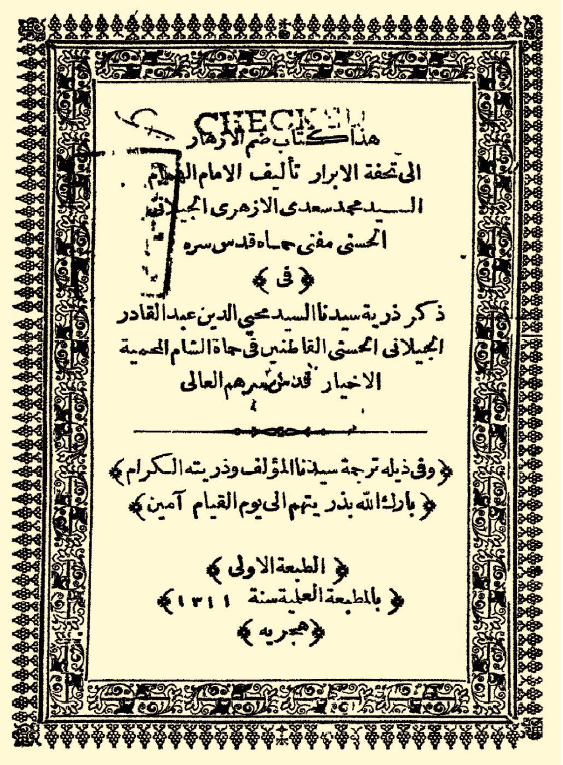 CHECK
هذا كتاب ضم الازهار
الى تحفة الابرار تأليف الامام الهمام
السيد محمد سعدى الازهرى الجيلانى
الحسنى مفتى حماه قدس سره
﴿ فى ﴾
ذكر ذرية سيدنا السيد محيي الدين عبد القادر
الجيلانى الحسنى القاطنين فى حماة الشام المحمية
الاخيار قدس سرهم العالى
﴿ وفى ذيله ترجمة سيدنا المؤلف وذريته الكرام ﴾
﴿ بارك الله بذريتهم الى يوم القيام آمين ﴾
﴿ الطبعة الاولى ﴾
﴿ بالمطبعة العلمية سنة ١٣١١ ﴾
﴿ هجريه ﴾